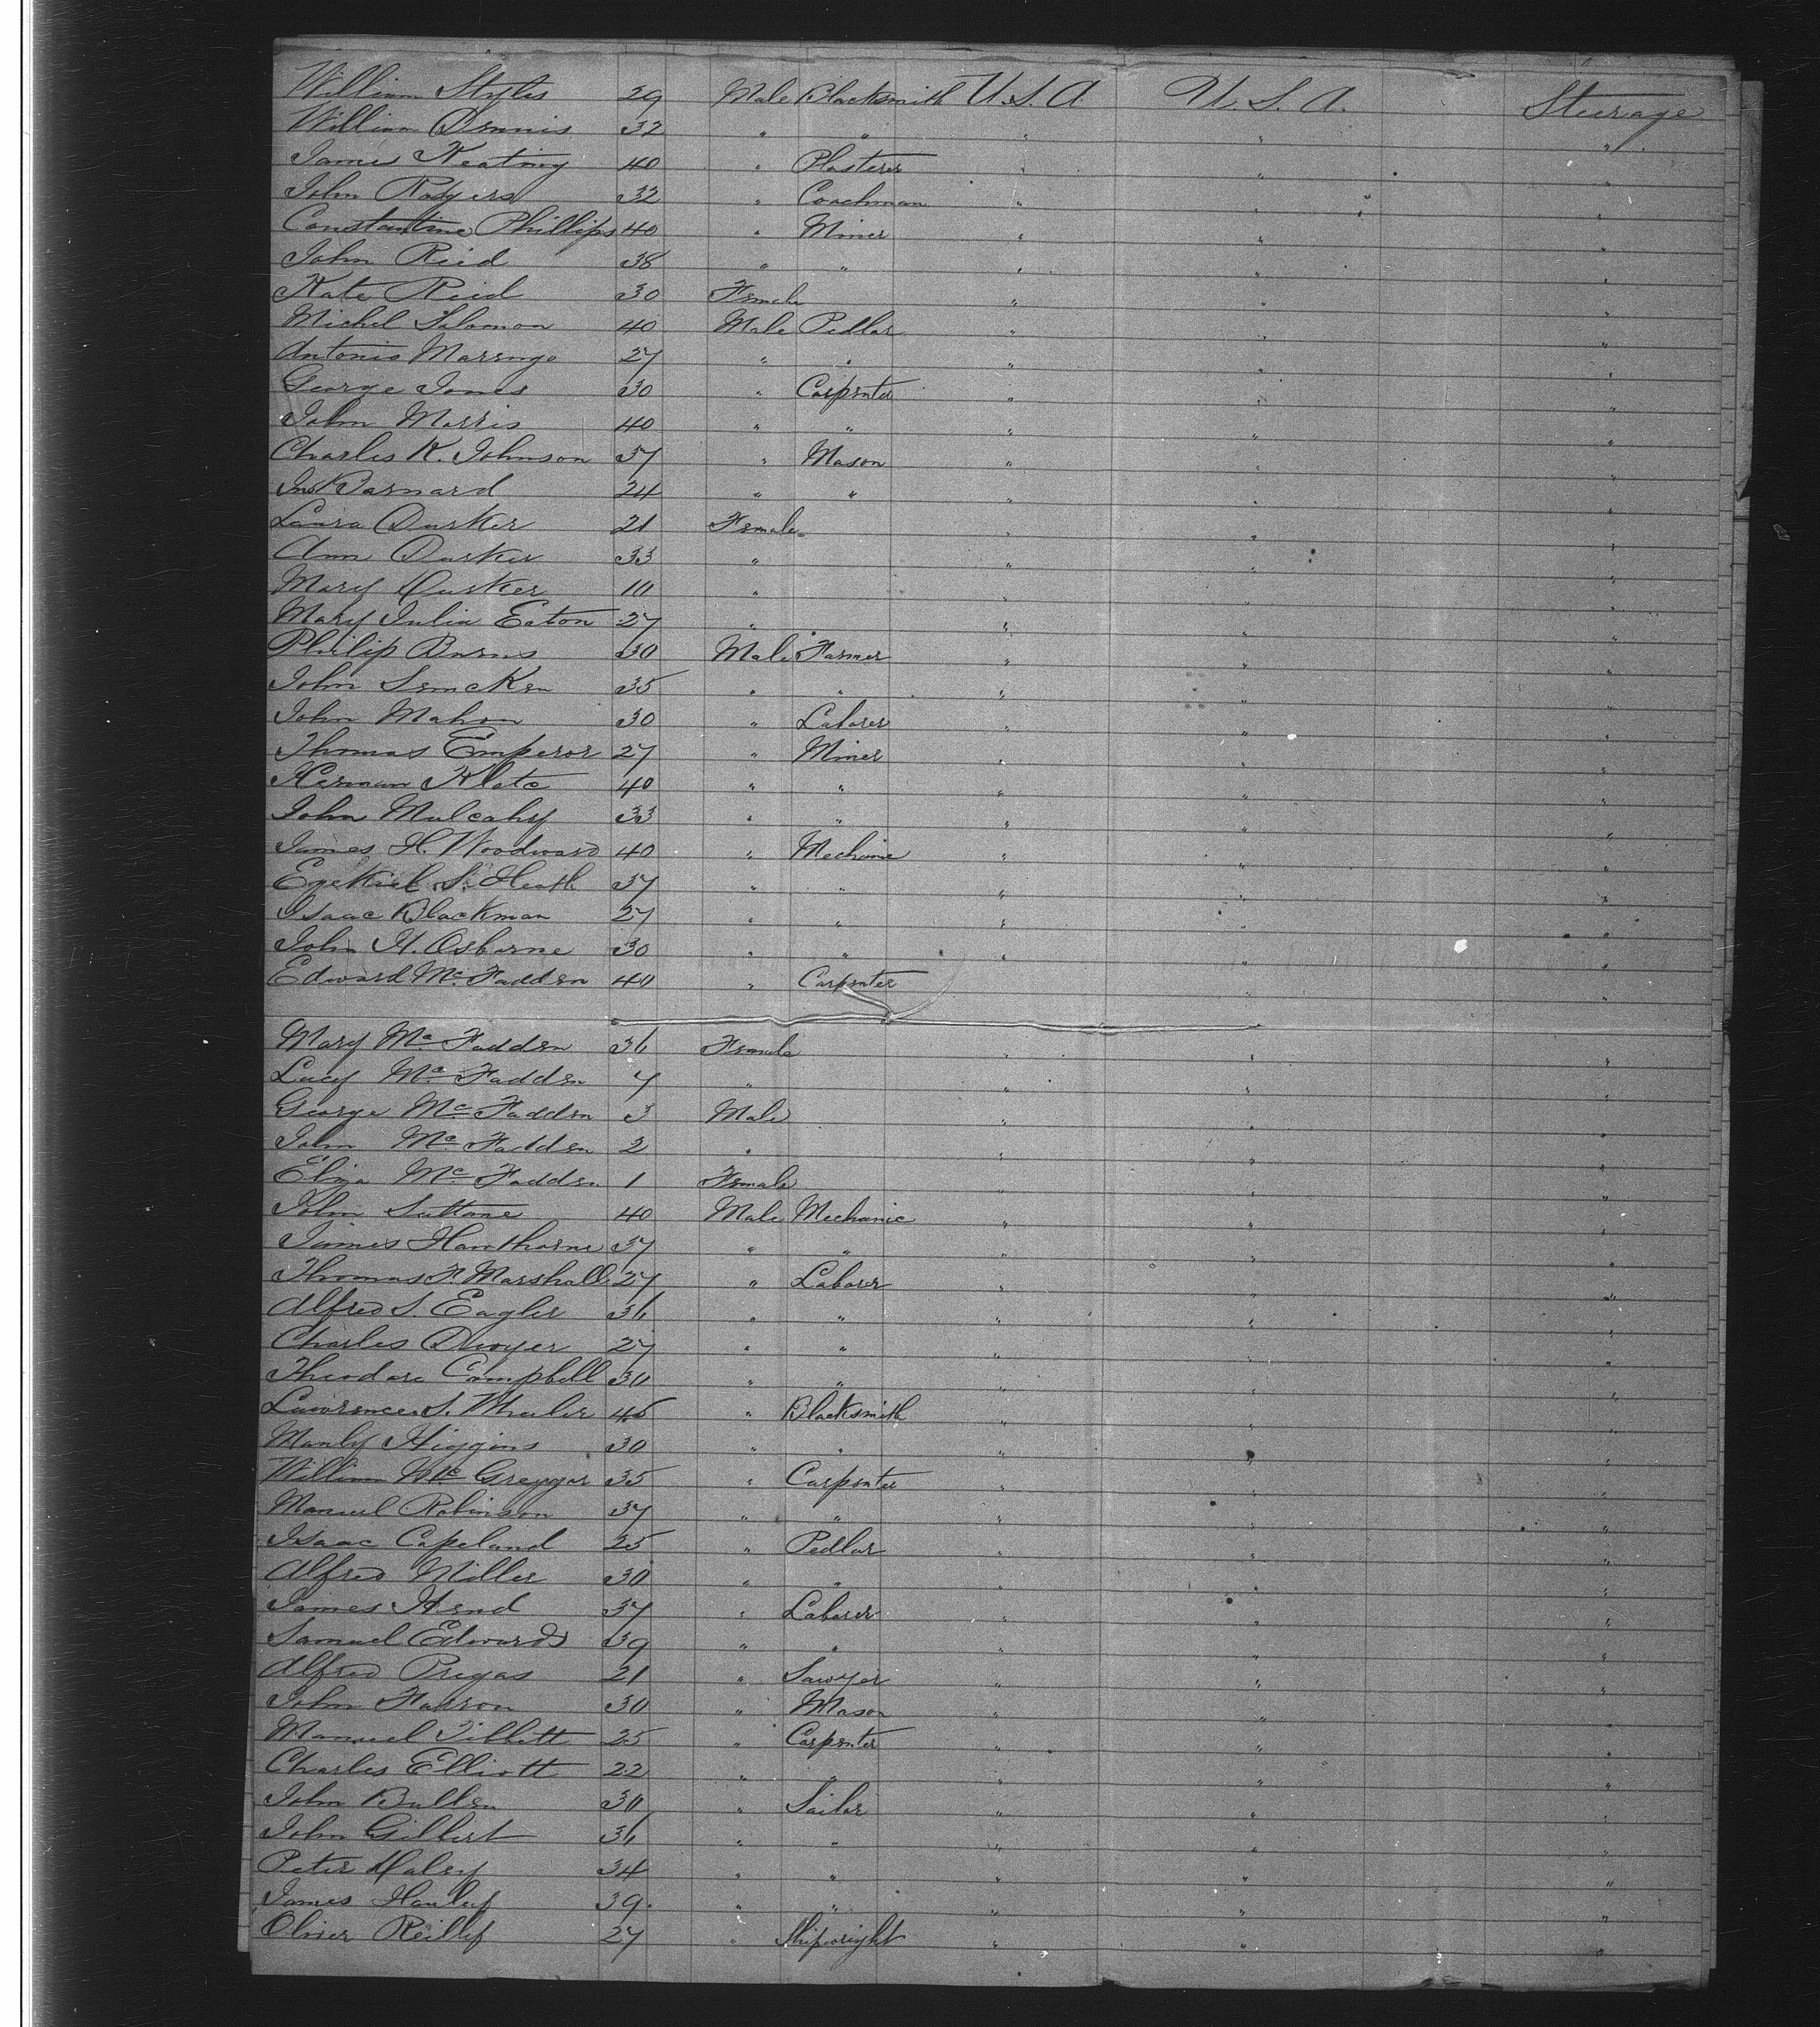 William Styles 29 Male Blacksmith U.S.A. U.S.A. Steerage
William Dennis 32 " " " " "
James Keating 40 " Plasterer " " "
John Rodgers 32 " Coachman " " "
Constantine Phillips 40 " Miner " " "
John Reid 38 " " " " "
Kate Reid 30 Female " " "
Michel Solomon 40 Male Pedlar " " "
Antonio Marengo 27 " " " " "
George Jones 30 " Carpenter " " "
John Morris 40 " " " " "
Charles K. Johnson 37 " Mason " " "
Jno Barnard 24 " " " " "
Laura Dusker 21 Female " " "
Ann Dusker 33 " " " "
Mary Dusker 10 " " " "
Mary Julia Eaton 27 " " " "
Philip Burns 30 Male Farmer " " "
John Lemcken 35 " " " " "
John Mahon 30 " Laborer " " "
Thomas Emperor 27 " Miner " " "
Herman Klate 40 " " " " "
John Mulcahy 33 " " " " "
James H. Woodward 40 " Mechanic " " "
Ezekiel S. Heath 37 " " " " "
Isaac Blackman 27 " " " " "
John H. Osborne 30 " " " " "
Edward McFadden 40 " Carpenter " " "
Mary McFadden 36 Female " " "
Lucy McFadden 7 " " " "
George McFadden 3 Male " " "
John McFadden 2 " " " "
Eliza McFadden 1 Female " " "
John Suttone 40 Male Mechanic " " "
James Hawthorne 37 " " " " "
Thomas F. Marshall 27 " Laborer " " "
Alfred S. Eagler 36 " " " " "
Charles Dwyer 27 " " " " "
Theodore Campbell 30 " " " " "
Lawrence S. Wheeler 45 " Blacksmith " " "
Manly Higgins 30 " " " " "
William McGreggor 35 " Carpenter " " "
Manuel Robinson 37 " " " " "
Isaac Copeland 25 " Pedlar " " "
Alfred Miller 30 " " " " "
James Hend 37 " Laborer " " "
Samuel Edwards 39 " " " " "
Alfred Pregas 21 " Sawyer " " "
John Farron 30 " Mason " " "
Manuel Tibbett 25 " Carpenter " " "
Charles Elliott 22 " " " " "
John Bullen 30 " Sailor " " "
John Gilbert 36 " " " " "
Peter Haley 34 " " " " "
James Hanley 39 " " " " "
Oliver Reilly 27 " Shipwright " " "